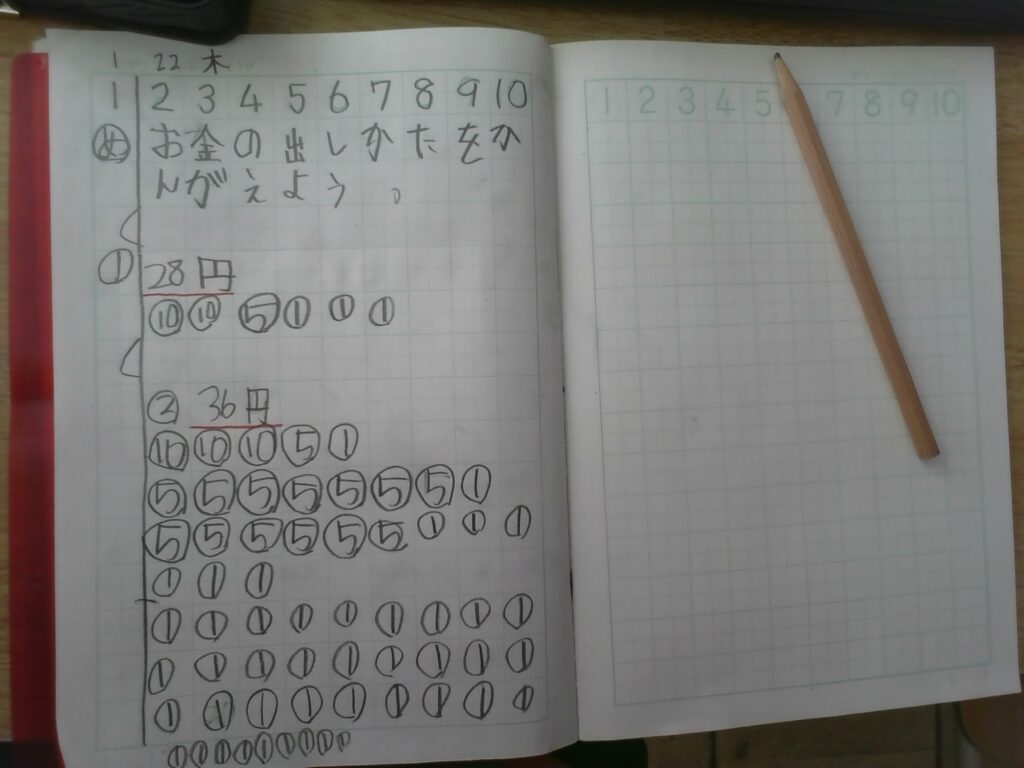 1 22 木
1 2 3 4 5 6 7 8 9 10
め お金の出しかたをか
んがえよう。
① 28円
⑩ ⑩ ⑤ ① ① ①
② 36円
⑩ ⑩ ⑩ ⑤ ①
⑤ ⑤ ⑤ ⑤ ⑤ ⑤ ⑤ ①
⑤ ⑤ ⑤ ⑤ ⑤ ⑤ ① ① ①
① ① ①
① ① ① ① ① ① ① ① ①
① ① ① ① ① ① ① ① ①
① ① ① ① ① ① ① ① ①
① ① ① ① ① ① ① ① ①
1 2 3 4 5 7 8 9 10